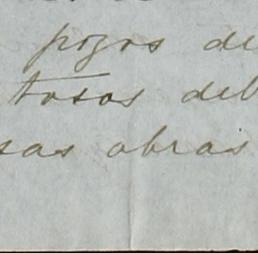 pozos de
tosos deb
sas obras